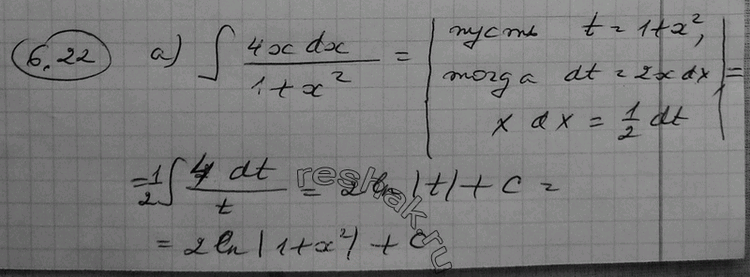 6.22 а) ∫ 4x dx / 1+x² = | пусть t = 1+x²,
тогда dt = 2x dx
x dx = 1/2 dt | =
= 1/2 ∫ 4 dt / t = 2 ln |t| + C =
= 2 ln |1+x²| + C
reshak.ru